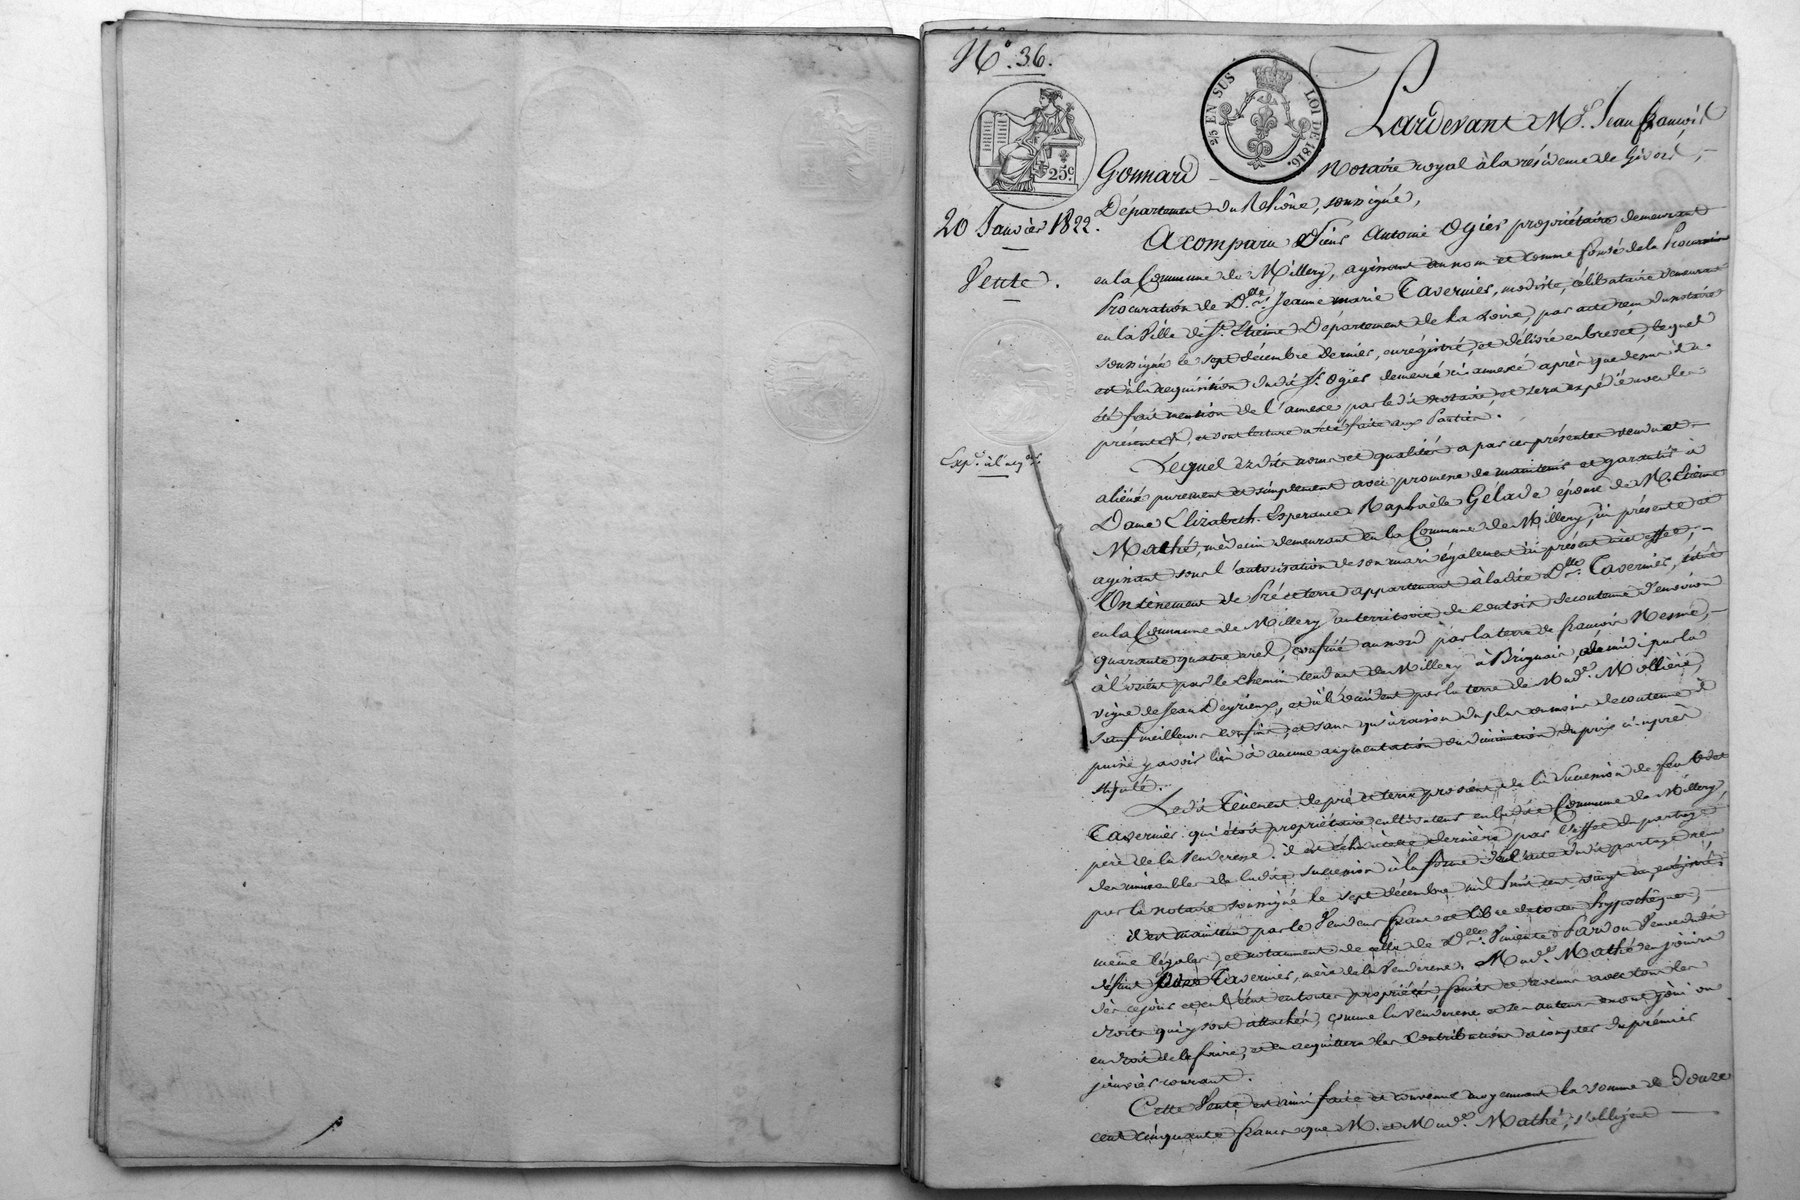 N.° 36.
25 EN SUS
LOI DE 1816.
25.c
20 Janvier 1822.
Vente.
Expé. à l'acq.r
Pardevant M.e Jean françois
Gonnard Notaire royal à la résidence de Givors,
Département du Rhône, soussigné,
A comparu Sieur Antoine Ogier propriétaire demeurant
en la Commune de Millery, agissant au nom et comme fondé de la
Procuration de D.lle Jeanne marie Tavernier, modiste, célibataire demeurant
en la Ville de S.t Etienne Département de la Loire, par acte reçu du notaire
soussigné le sept décembre dernier, enrégistré, et délivré en brevet, lequel
est à la réquisition dudit S.r Ogier demeuré ci annexé après que dessus il a
été fait mention de l'annexe par ledit notaire, et sera expédié avec les
présentes, et dont lecture a été faite aux Parties.
Lequel esdits noms et qualités a par ces présentes vendu et
aliéné purement et simplement avec promesse de maintenir et garantir à
Dame Elizabeth Esperance Raphaële Gélade épouse de M. Etienne
Mathé, médecin demeurant en la Commune de Millery, ici présente et
agissant sous l'autorisation de son mari également ici présent à cet effet,
Un tènement de Pré et terre appartenant à ladite D.lle Tavernier, situé
en la Commune de Millery au territoire de contenue d'environ
quarante quatre ares, confiné au nord par la terre de françois Mesmé,
à l'orient par le chemin tendant de Millery à Brignais, au midi par la
vigne de Jean Deyrieux, et à l'occident par la terre de Mad.e Mollière,
sauf meilleurs confins, et sans qu'à raison du plus ou moins de contenue il
puisse y avoir lieu à aucune augmentation ou diminution du prix ci après
stipulé.
Ledit Tènement de pré et terre provient de la Succession de feu
Tavernier qui étoit propriétaire cultivateur en ladite Commune de Millery,
père de la Venderesse. il est échu à cette dernière par l'effet du partage
des immeubles de ladite succession à la forme de l'acte dudit partage reçu
par le notaire soussigné le sept décembre mil huit cent vingt un, enrégistré;
il est maintenu par le Vendeur franc et libre de toutes hypothèques,
même légales, et notamment de celle de D.lle Pardon Veuve dudit
défunt Tavernier, mère de la Venderesse. Mad.e Mathé en jouira
dès ce jour et en l'état en toute propriété, fruits et revenus avec tous les
droits qui y sont attachés, comme la venderesse et ses auteurs en ont joui ou
eu droit de le faire, et en acquittera les Contributions à compter du premier
janvier courant.
Cette Vente est ainsi faite et convenue moyennant la somme de Douze
cent cinquante francs que M. et Mad.e Mathé, s'obligent